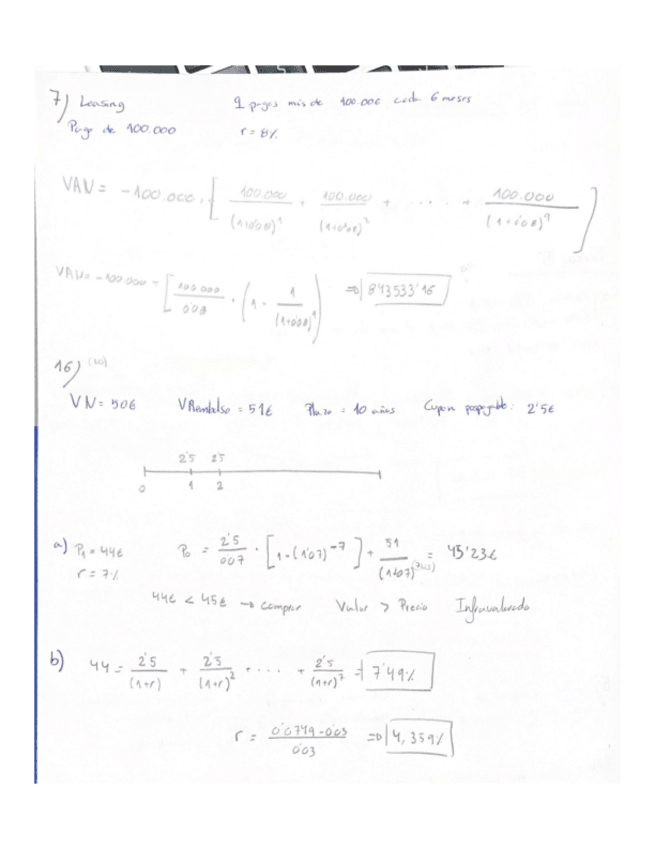 7) Leasing 9 pagos más de 100.000 cada 6 meses
Pago de 100.000 r = 8%
VAN = -100.000 + [ 100.000 / (1+0'08)^1 + 100.000 / (1+0'08)^2 + . . . . + 100.000 / (1+0'08)^9 ]
VAN = -100.000 - [ 100.000 / 0'08 · ( 1 - 1 / (1+0'08)^9 ) ⇒ 843533'16
16)
VN = 50€ VRembolso = 51€ Plazo = 10 años Cupon pospagable: 2'5€
2'5 2'5
0 1 2
a) P1 = 44€ P0 = 2'5 / 0'07 · [ 1 - (1'07)^-7 ] + 51 / (1+07)^7 = 45'23€
r = 7%
44€ < 45€ → comprar Valor > Precio Infravalorado
b) 44 = 2'5 / (1+r) + 2'5 / (1+r)^2 + . . . + 2'5 / (1+r)^7 = 7'49%
r = 0'0749 - 0'03 / 0'03 ⇒ 4,359%